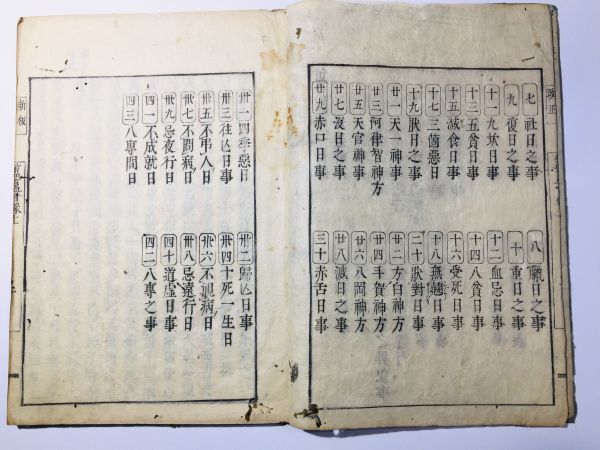 改正
七 社日之事
八 臘日之事
九 復日之事
十 重日之事
十一 九坎日事
十二 血忌日事
十三 五貧日事
十四 八貧日事
十五 滅食日事
十六 受死日事
十七 三箇惡日
十八 無翹日事
十九 狀日之事
二十 狀對日事
廿一 天一神事
廿二 方白神方
廿三 阿律智神方
廿四 手賀神方
廿五 天官神事
廿六 八岡神方
廿七 沒日之事
廿八 滅日之事
廿九 赤口日事
三十 赤舌日事
卅一 四季惡日
卅二 歸亡日事
卅三 往亡日事
卅四 十死一生日
卅五 不弔人日
卅六 不視病日
卅七 不問病日
卅八 忌遠行日
卅九 忌夜行日
四十 道虛日事
四一 不成就日
四二 八專之事
四三 八專間日
新板